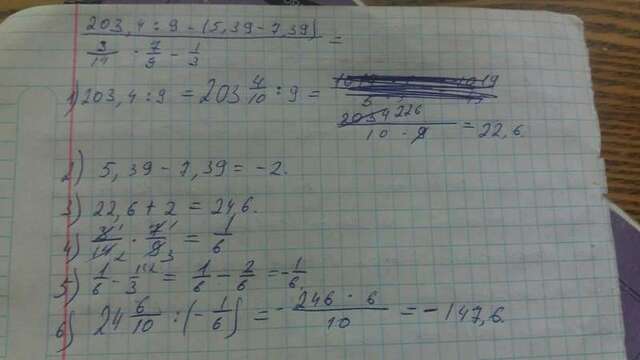 203,4 : 9 - (5,39 - 7,39)
3/14 · 7/9 - 1/3 =
1) 203,4 : 9 = 203 4/10 : 9 = 2034 226 / 10 · 9 = 22,6.
2) 5,39 - 7,39 = -2.
3) 22,6 + 2 = 24,6.
4) 3 1 / 14 2 · 7 1 / 9 3 = 1/6
5) 1/6 - 1\2 / 3 = 1/6 - 2/6 = -1/6.
6) 24 6/10 : (-1/6) = - 246 · 6 / 10 = -147,6.